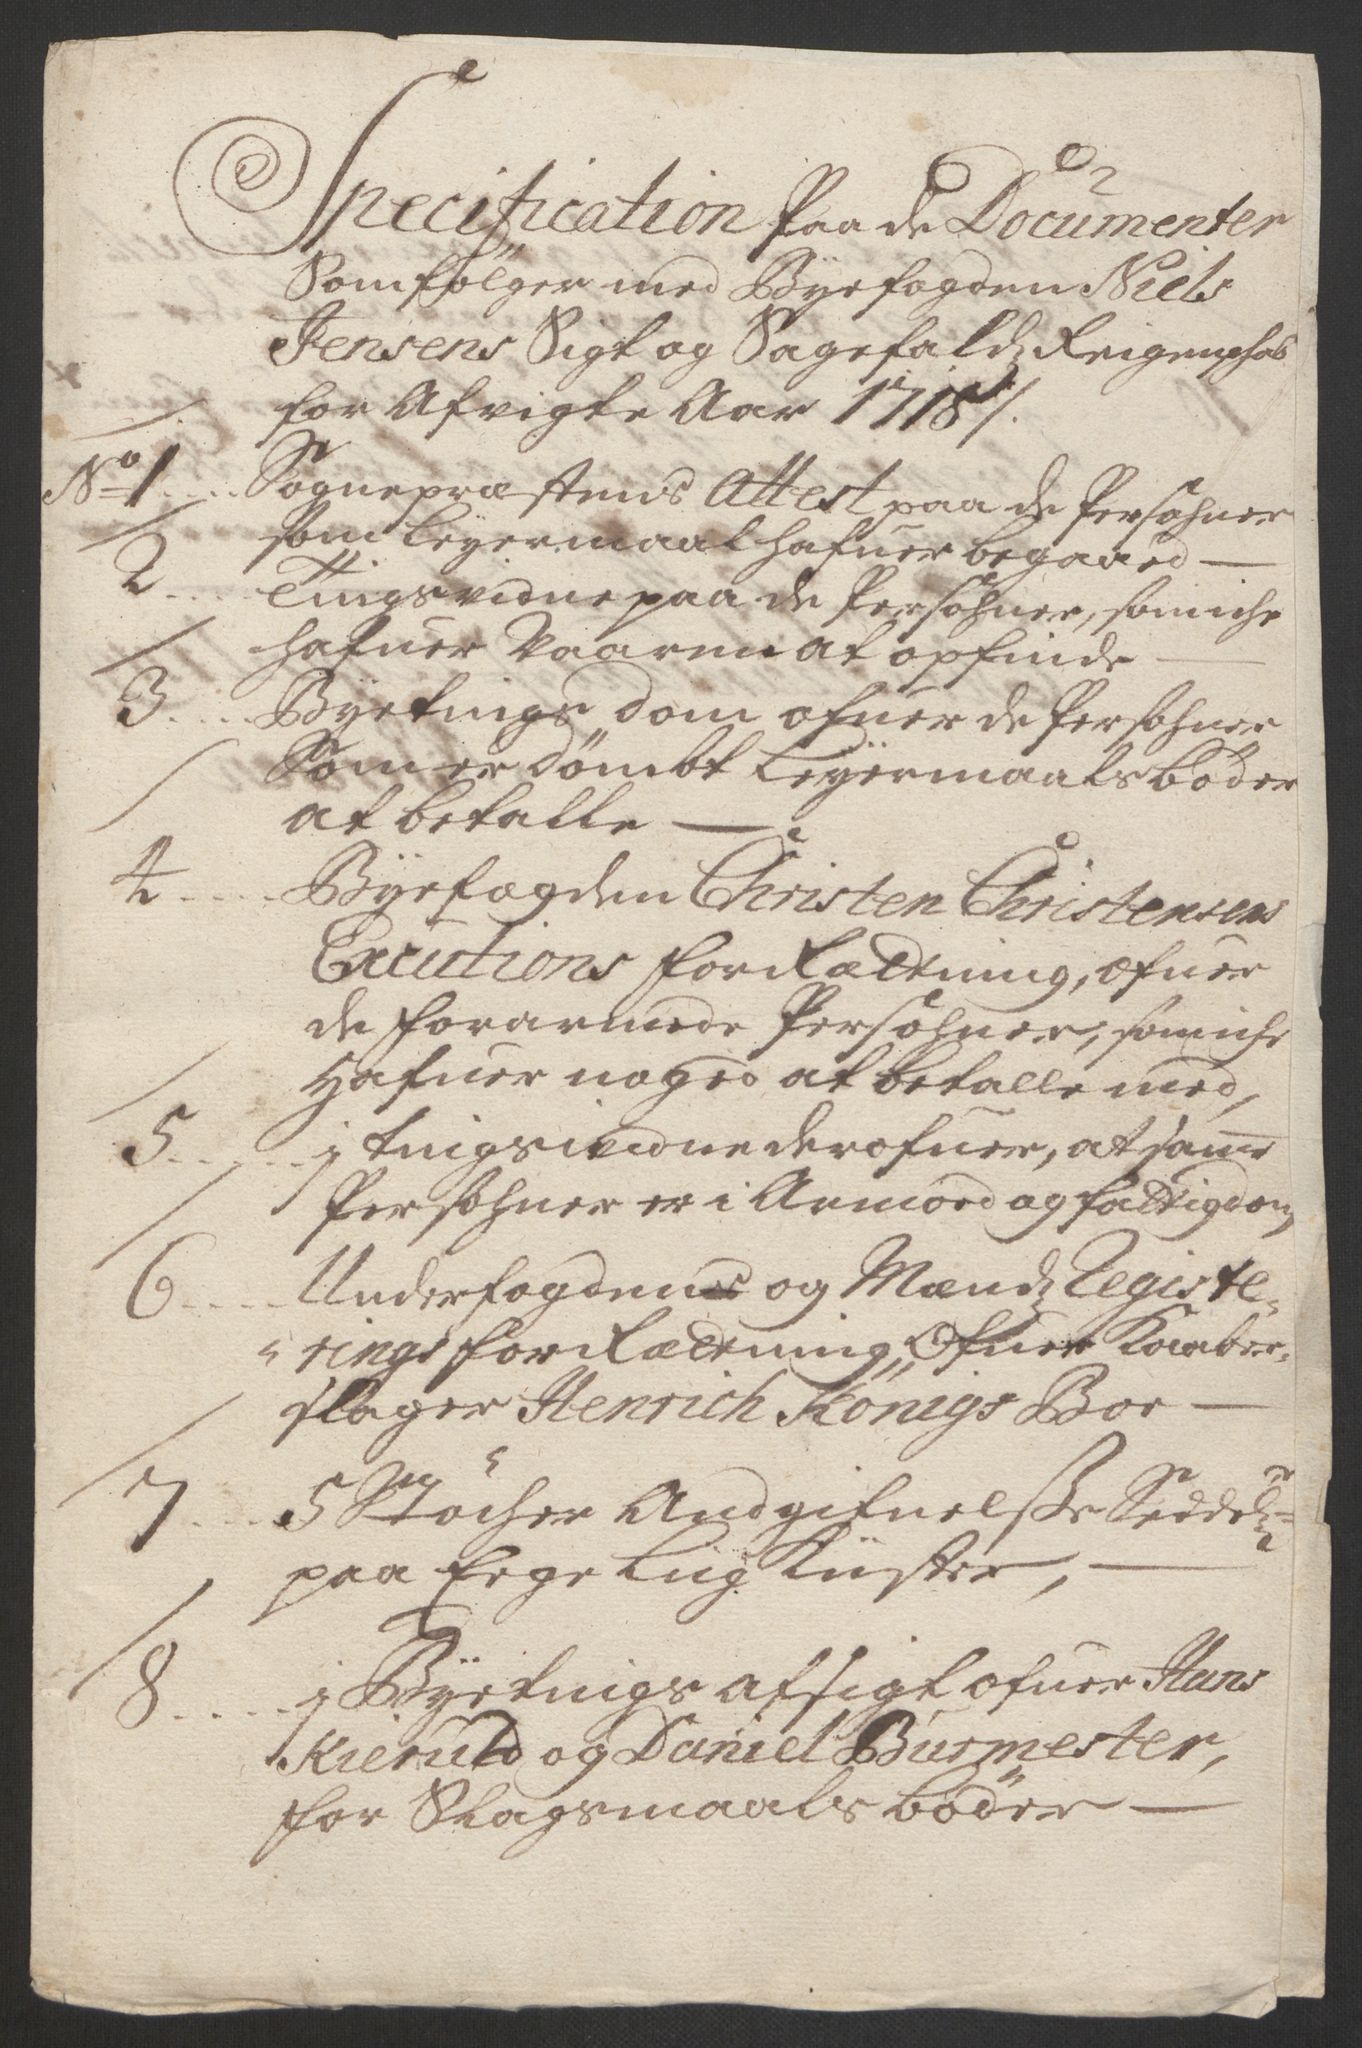 Specification Paa de Documenter
Som følger med Byefogden Niels
Jensens Sigt og Sagefaldz Reigenschab
for Afvigte Aar 1718 /.
No 1 .... Sognepræstens Attest paa de Persohner
som Leyermaal hafuer begaaed —
2 .... Tingsvidne paa de Persohner, som iche
hafuer Vaaren at opfinde —
3 .... Byetings dom ofuer de Persohner
Som er dömbt Leyermaals böder
at betalle —
4 .... Byefogden Christen Christensens
Excutions forRættning, ofuer
de forarmede Persohner, som iche
hafuer noged at betalle med,
5 .... j tingsvidne derofuer, at samme
Persohner er i Armoed og fattigdom,
6 .... Underfogdens og Mændz Registe-
rings forRættning, Ofuer Kaaber-
slager Henrich Königs Boe —
7 .... 5 Stöcher Andgifuelsse Seddeler
paa Lug Küster, —
8 .... j Byetings afsigt ofuer Hans
Kieruld og Daniel Burmester,
for Slagsmaals böder —